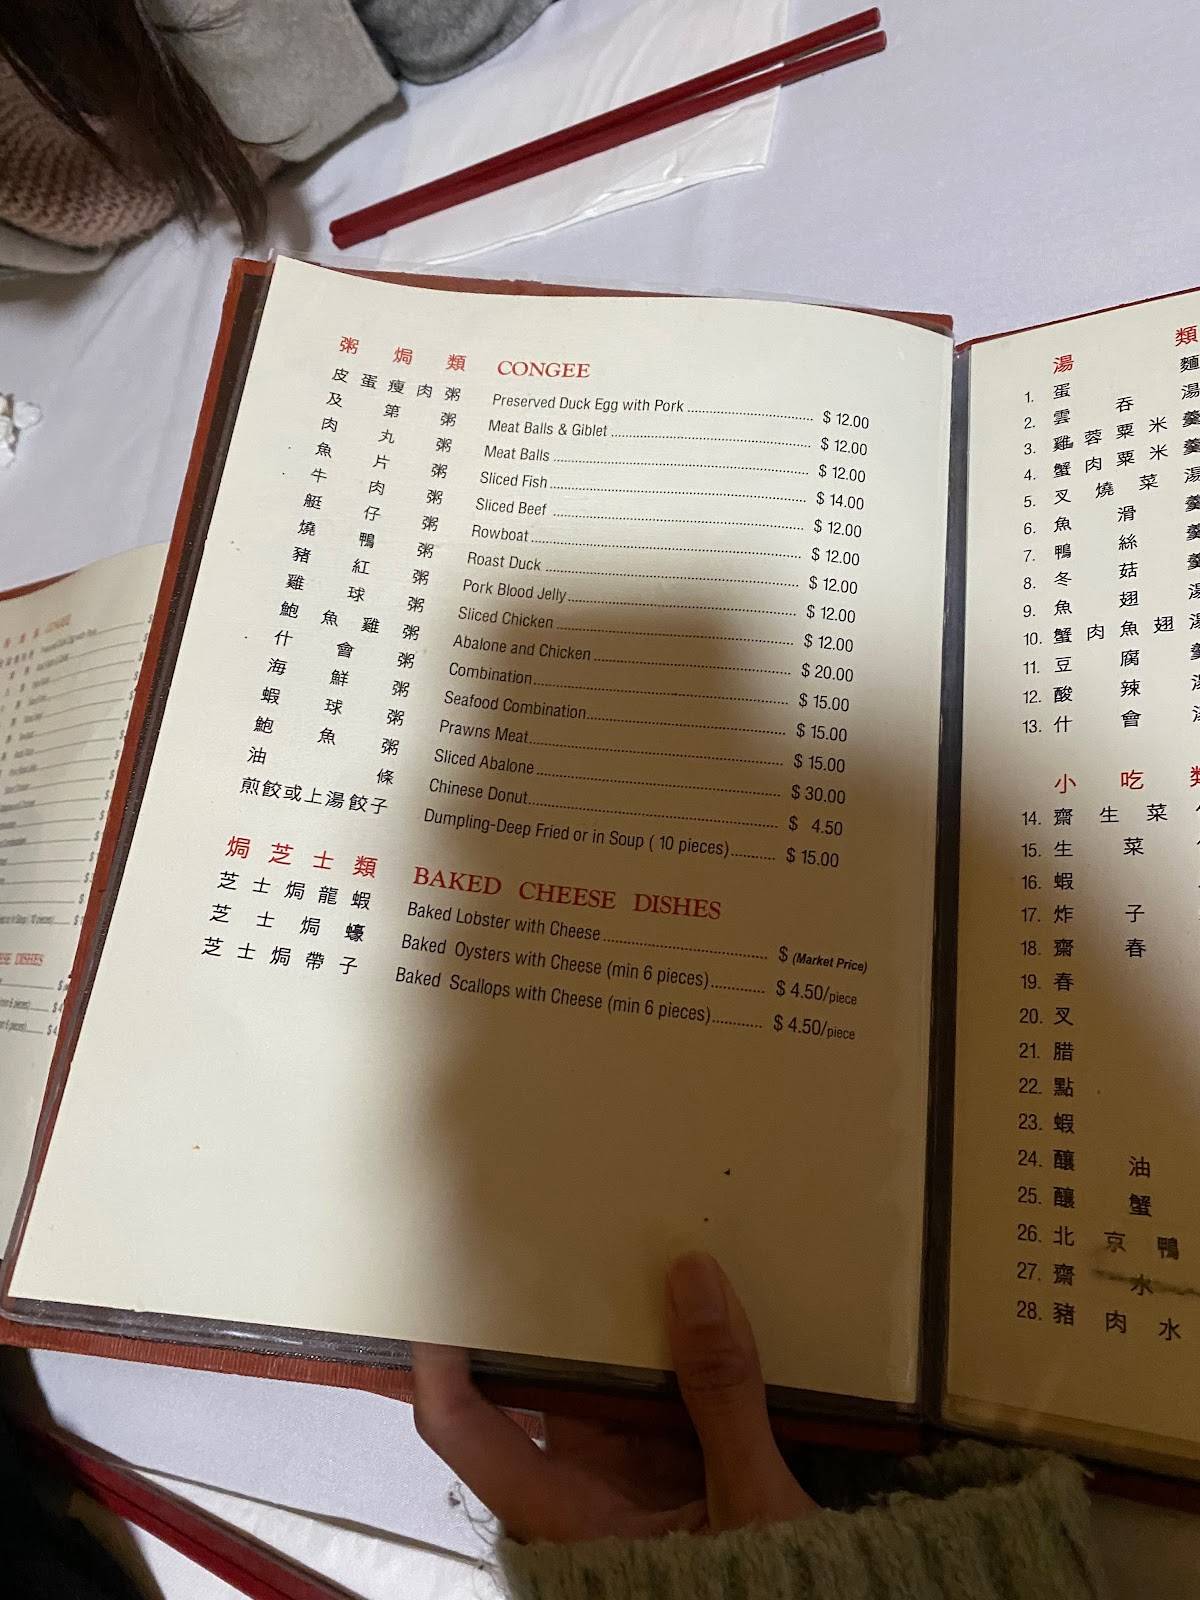 粥焗類 CONGEE
皮蛋瘦肉粥 Preserved Duck Egg with Pork ........ $ 12.00
及第粥 Meat Balls & Giblet ........ $ 12.00
肉丸粥 Meat Balls ........ $ 12.00
魚片粥 Sliced Fish ........ $ 14.00
牛肉粥 Sliced Beef ........ $ 12.00
艇仔粥 Rowboat ........ $ 12.00
燒鴨粥 Roast Duck ........ $ 12.00
豬紅粥 Pork Blood Jelly ........ $ 12.00
雞球粥 Sliced Chicken ........ $ 12.00
鮑魚雞粥 Abalone and Chicken ........ $ 20.00
什會粥 Combination ........ $ 15.00
海鮮粥 Seafood Combination ........ $ 15.00
蝦球粥 Prawns Meat ........ $ 15.00
鮑魚粥 Sliced Abalone ........ $ 30.00
油條 Chinese Donut ........ $ 4.50
煎餃或上湯餃子 Dumpling-Deep Fried or in Soup ( 10 pieces) ........ $ 15.00
焗芝士類 BAKED CHEESE DISHES
芝士焗龍蝦 Baked Lobster with Cheese ........ $ (Market Price)
芝士焗蠔 Baked Oysters with Cheese (min 6 pieces) ........ $ 4.50/piece
芝士焗帶子 Baked Scallops with Cheese (min 6 pieces) ........ $ 4.50/piece
湯類
1. 蛋麵湯
2. 雲吞湯
3. 雞蓉粟米羹
4. 蟹肉粟米羹
5. 叉燒菜湯
6. 魚滑羹
7. 鴨絲羹
8. 冬菇羹
9. 魚翅湯
10. 蟹肉魚翅湯
11. 豆腐羹
12. 酸辣湯
13. 什會湯
小吃類
14. 齋生菜
15. 生菜
16. 蝦
17. 炸子
18. 齋春
19. 春
20. 叉
21. 腊
22. 點
23. 蝦
24. 釀油
25. 釀蟹
26. 北京鴨
27. 齋水
28. 豬肉水